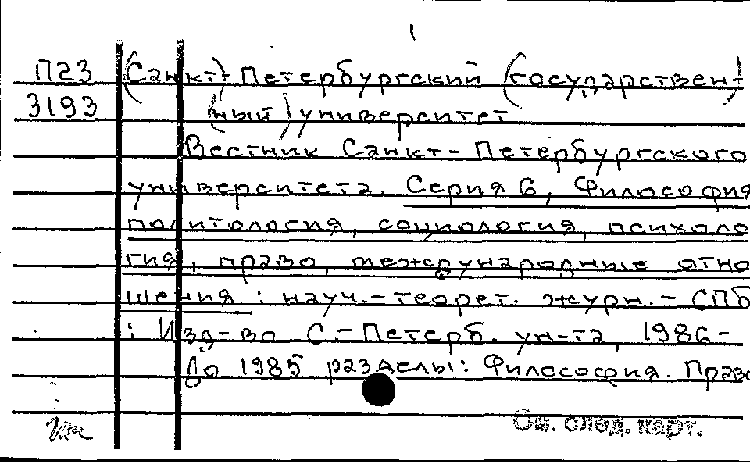 П23 (Санкт)-Петербургский (государствен-
3193 ный) университет
Вестник Санкт-Петербургского
университета. Серия 6, Философия
политология, социология, психоло
гия, право, международные отно
шения : науч.-теорет. журн. - СПб
: Изд-во С.-Петерб. ун-та, 1986-
До 1985 разделы: Философия. Право
См. след. карт.